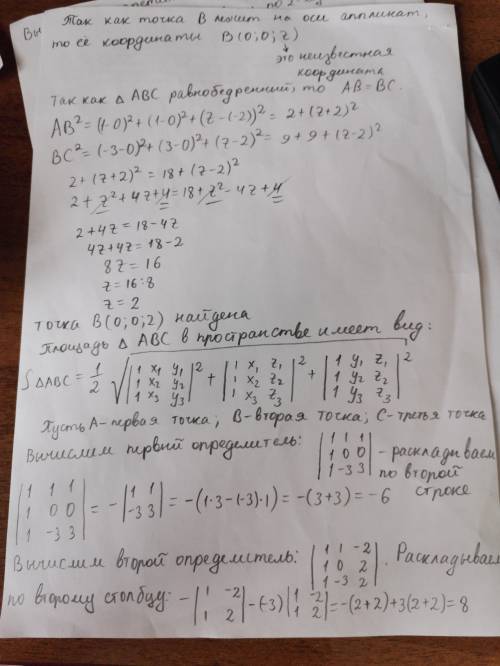 Так как точка B лежит на оси аппликат,
то её координаты B(0;0;z)
это неизвестная
координата
Так как △ ABC равнобедренний, то AB=BC.
AB²=(1-0)²+(1-0)²+(z-(-2))²= 2+(z+2)²
BC²=(-3-0)²+(3-0)²+(z-2)²= 9+9+(z-2)²
2+(z+2)²=18+(z-2)²
2+z²+4z+4=18+z²-4z+4
2+4z=18-4z
4z+4z=18-2
8z=16
z=16:8
z=2
точка B(0;0;2) найдена
Площадь △ ABC в пространстве имеет вид:
S△ABC = 1/2 √(|1 x₁ y₁; 1 x₂ y₂; 1 x₃ y₃|² + |1 x₁ z₁; 1 x₂ z₂; 1 x₃ z₃|² + |1 y₁ z₁; 1 y₂ z₂; 1 y₃ z₃|²)
Пусть A-первая точка; B-вторая точка; C-третья точка
Вычислим первый определитель: |1 1 1; 1 0 0; 1 -3 3| - раскладываем
по второй
строке
|1 1 1; 1 0 0; 1 -3 3| = -|1 1; -3 3| = -(1·3-(-3)·1)=-(3+3)=-6
Вычислим второй определитель: |1 1 -2; 1 0 2; 1 -3 2|. Раскладываем
по второму столбцу: -|1 -2; 1 2|-(-3)|1 -2; 1 2|=-(2+2)+3(2+2)=8